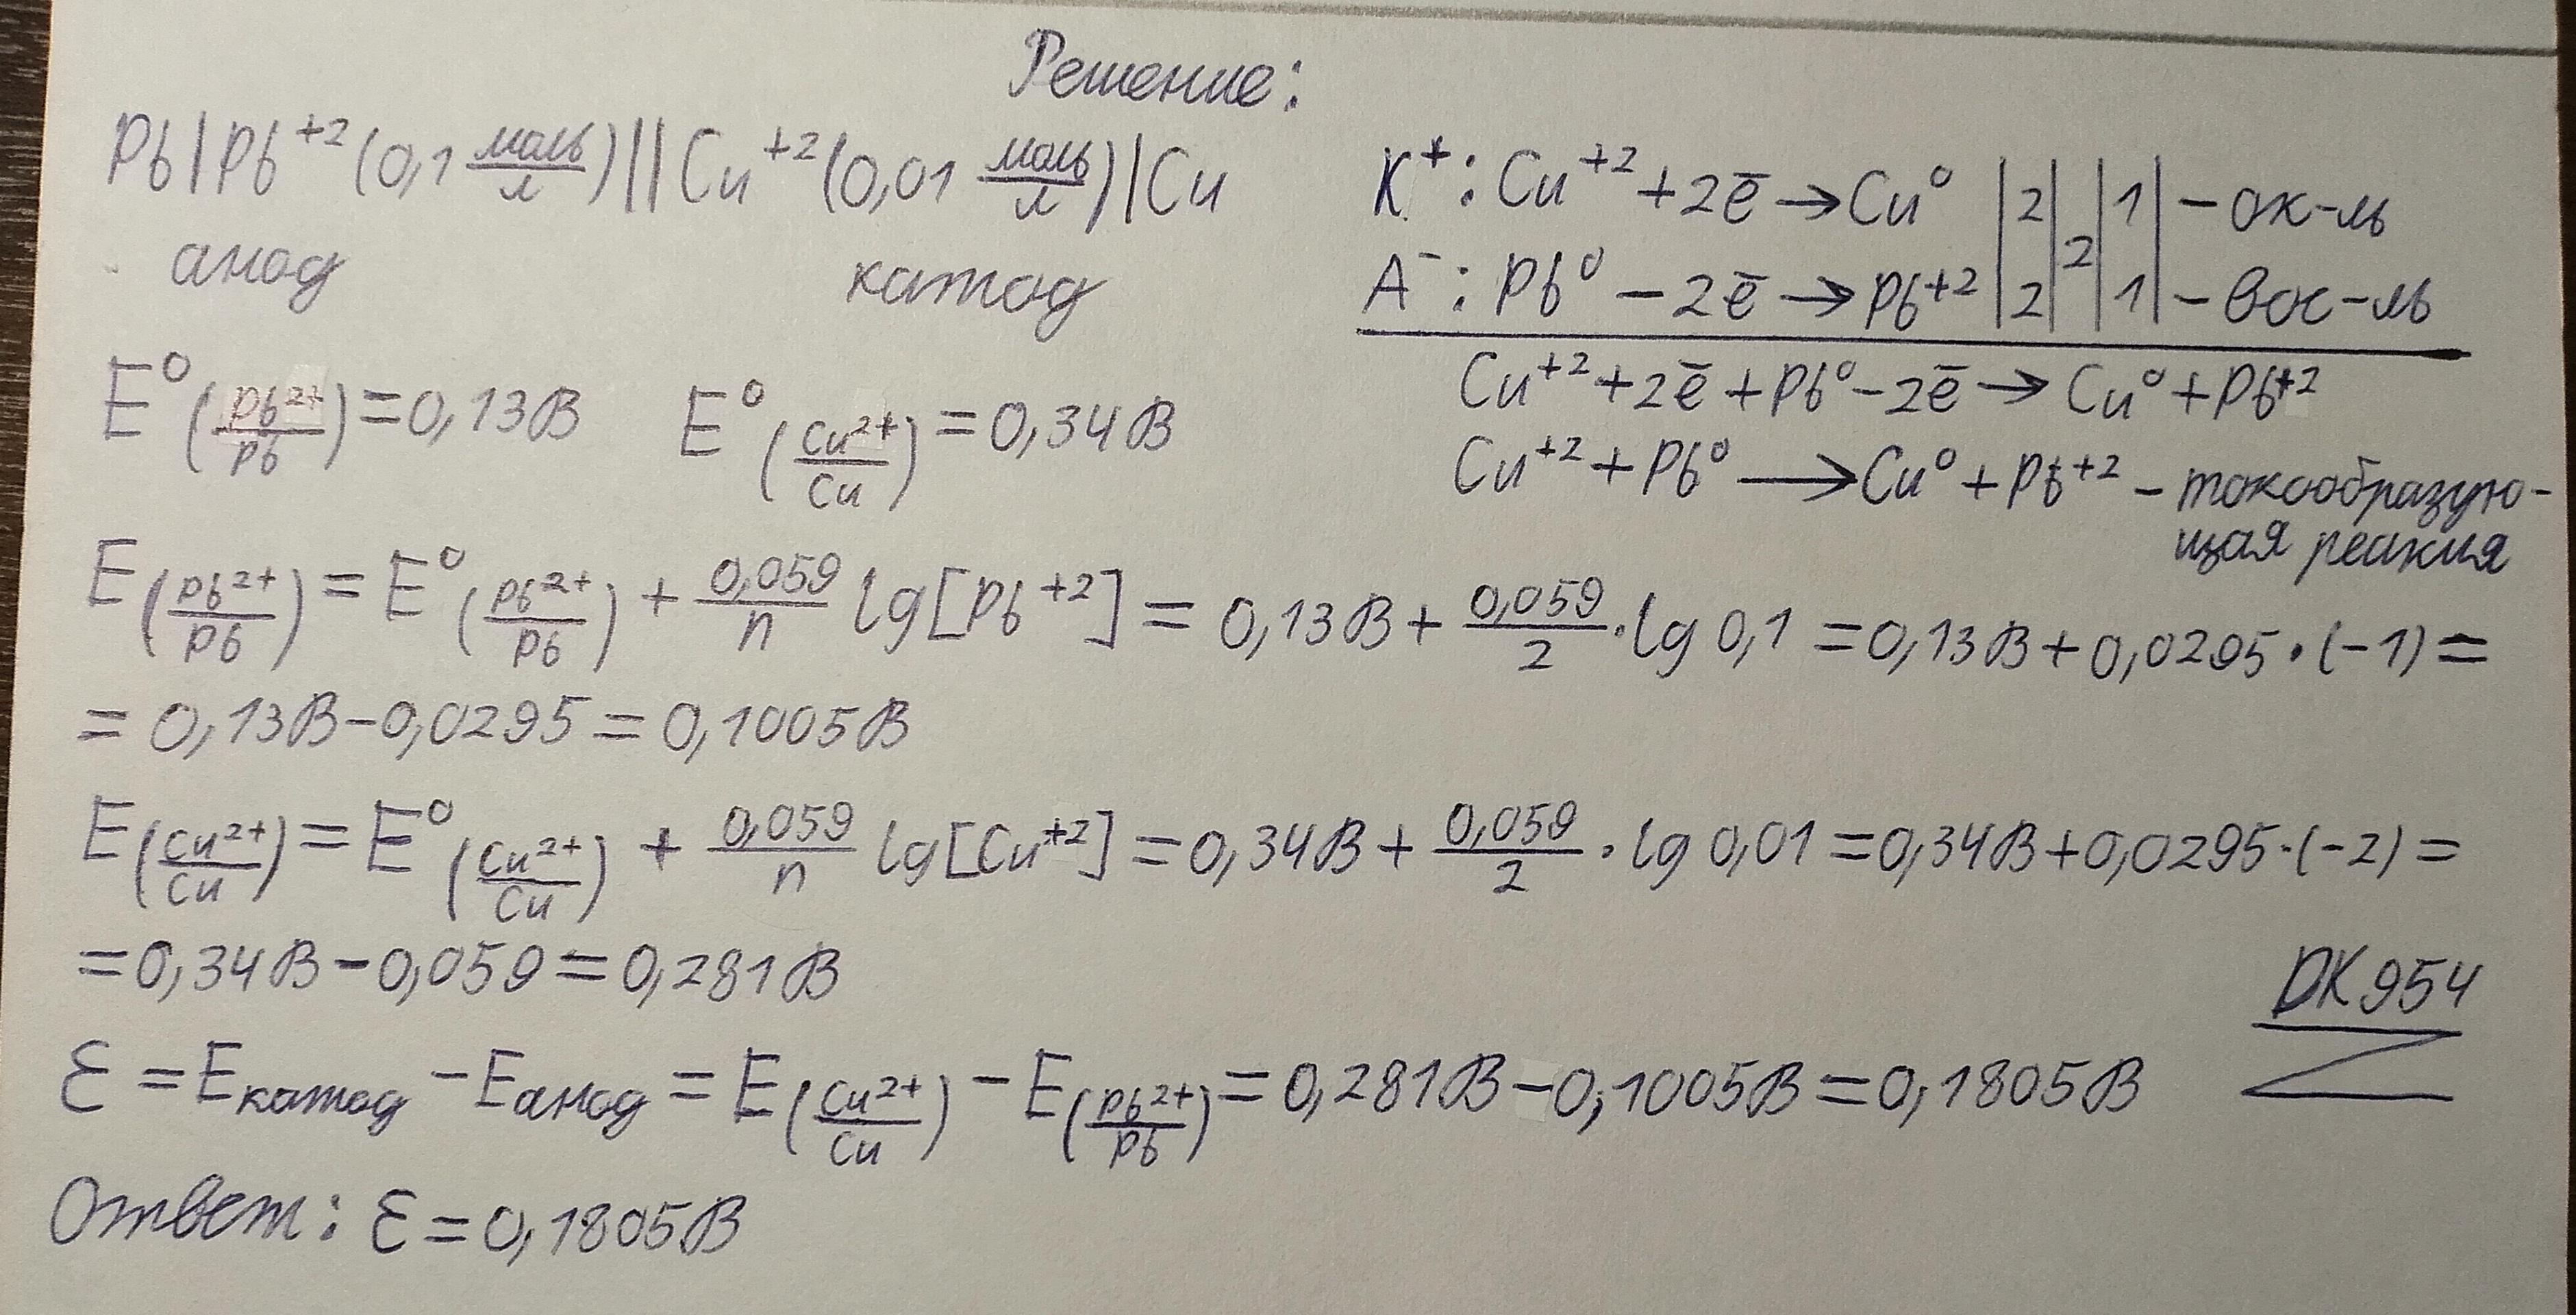 Решение:
Pb|Pb⁺²(0,1 моль/л)||Cu⁺²(0,01 моль/л)|Cu
анод катод
E⁰(Pb²⁺/Pb)=0,13В E⁰(Cu²⁺/Cu)=0,34В
K⁺: Cu⁺²+2ē→Cu⁰ |2| |1| – ок-ль
2
A⁻: Pb⁰–2ē→Pb⁺² |2| |1| – вос-ль
Cu⁺²+2ē+Pb⁰–2ē→Cu⁰+Pb⁺²
Cu⁺²+Pb⁰→Cu⁰+Pb⁺² – токообразую-
щая реакия
E(Pb²⁺/Pb)=E⁰(Pb²⁺/Pb)+0,059/n lg[Pb⁺²]=0,13В+0,059/2·lg0,1=0,13В+0,0295·(-1)=
=0,13В–0,0295=0,1005В
E(Cu²⁺/Cu)=E⁰(Cu²⁺/Cu)+0,059/n lg[Cu⁺²]=0,34В+0,059/2·lg0,01=0,34В+0,0295·(-2)=
=0,34В–0,059=0,281В
DK954
Ɛ=Eкатод–Eанод=E(Cu²⁺/Cu)–E(Pb²⁺/Pb)=0,281В–0,1005В=0,1805В
Ответ: Ɛ=0,1805В